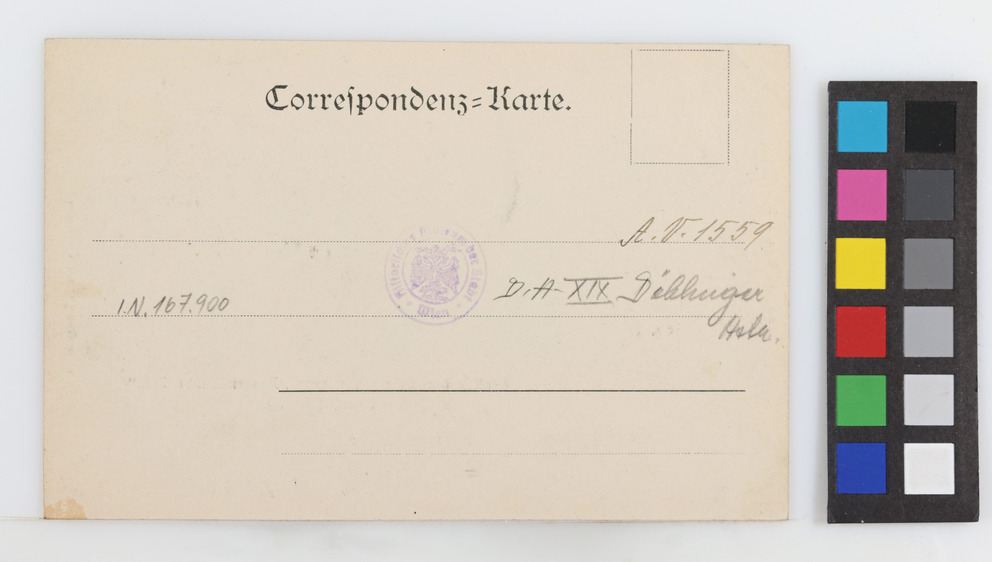 Correſpondenz=Karte.
A.V. 1559
D.A-XIX Döblinger
I.N. 167.900
der Stadt
Wien